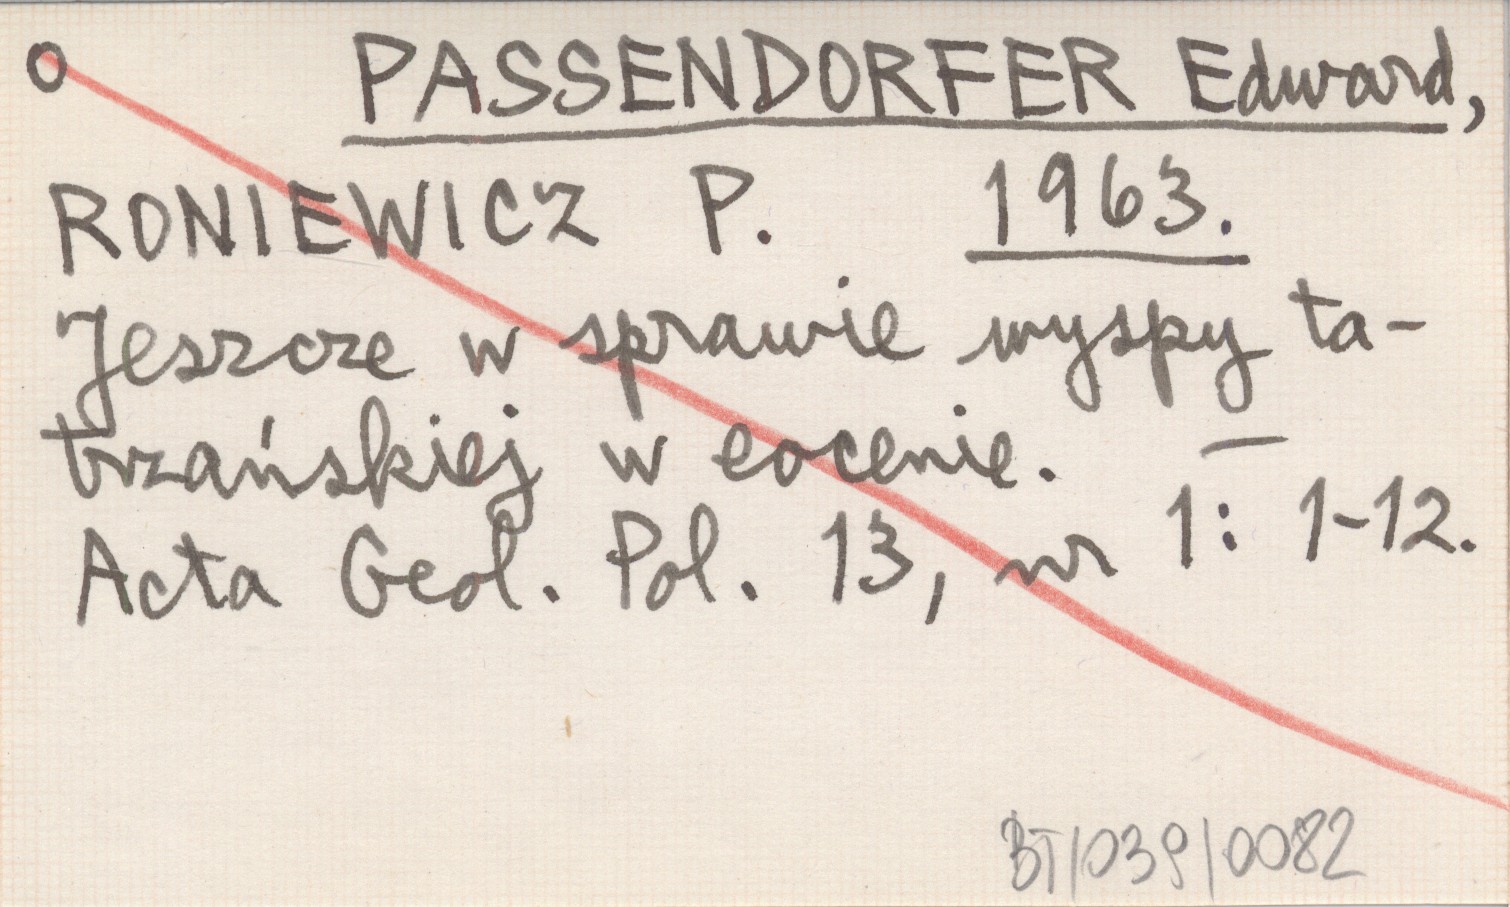 O PASSENDORFER Edward,
RONIEWICZ P. 1963.
Jeszcze w sprawie wyspy ta-
trzańskiej w eocenie. —
Acta Geol. Pol. 13, nr 1: 1-12.
BT/039/0082